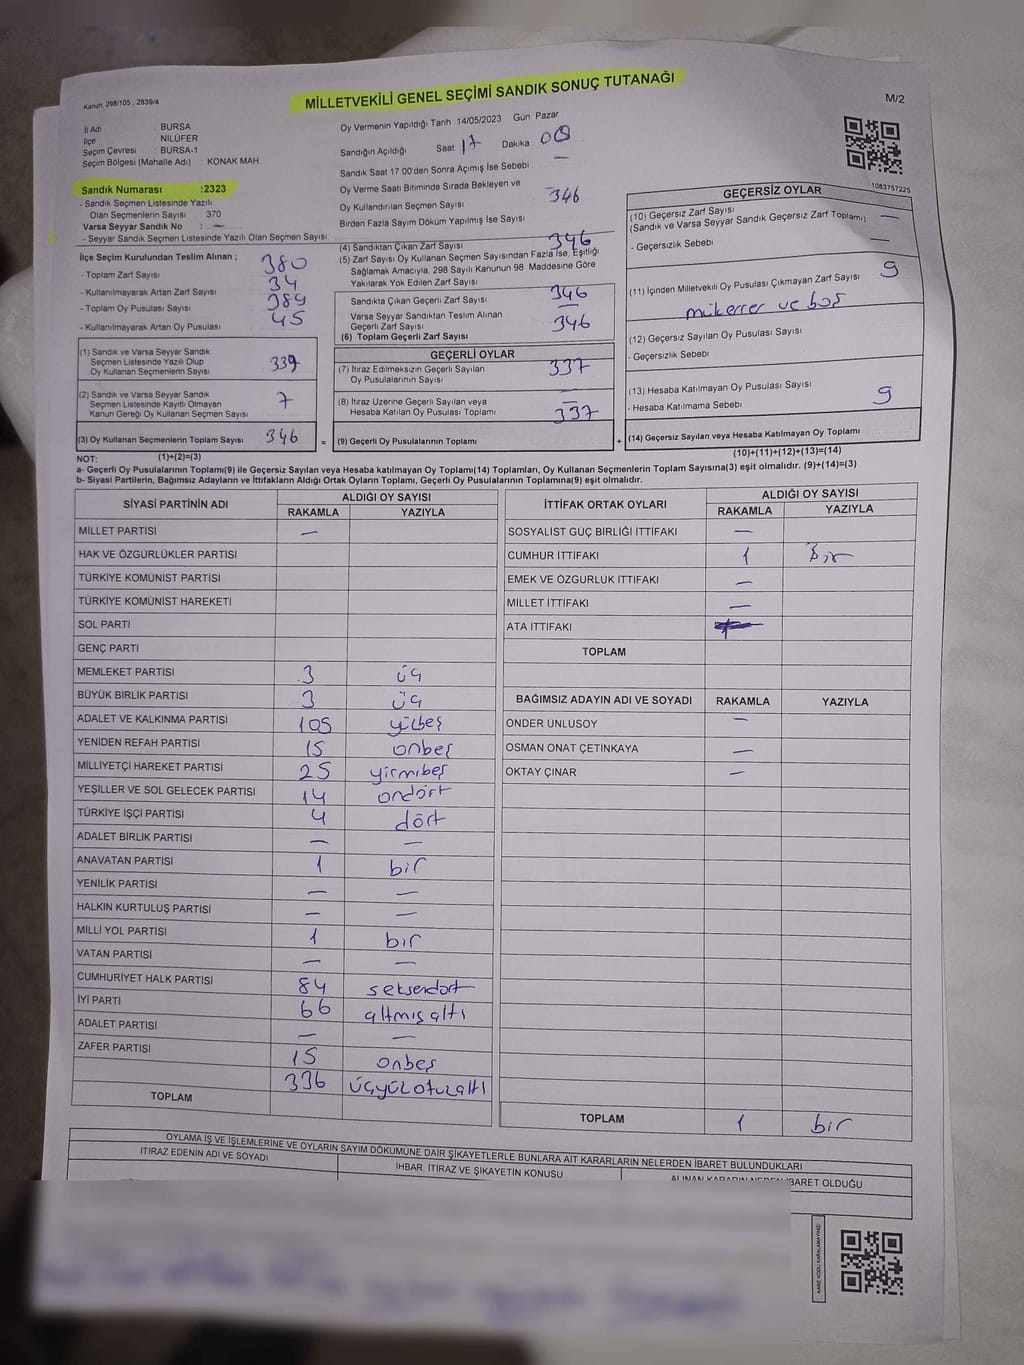 Kanun: 298/105 , 2839/4
MİLLETVEKİLİ GENEL SEÇİMİ SANDIK SONUÇ TUTANAĞI
M/2
İl Adı : BURSA
İlçe : NİLÜFER
Seçim Çevresi : BURSA-1
Seçim Bölgesi (Mahalle Adı) : KONAK MAH.
Sandık Numarası :2323
- Sandık Seçmen Listesinde Yazılı
Olan Seçmenlerin Sayısı : 370
Varsa Seyyar Sandık No : —
- Seyyar Sandık Seçmen Listesinde Yazılı Olan Seçmen Sayısı:
İlçe Seçim Kurulundan Teslim Alınan ;
- Toplam Zarf Sayısı 380
- Kullanılmayarak Artan Zarf Sayısı 34
- Toplam Oy Pusulası Sayısı 389
- Kullanılmayarak Artan Oy Pusulası 45
(1) Sandık ve Varsa Seyyar Sandık
Seçmen Listesinde Yazılı Olup
Oy Kullanan Seçmenlerin Sayısı 339
(2) Sandık ve Varsa Seyyar Sandık
Seçmen Listesinde Kayıtlı Olmayan
Kanun Gereği Oy Kullanan Seçmen Sayısı 7
(3) Oy Kullanan Seçmenlerin Toplam Sayısı 346 =
(1)+(2)=(3)
Oy Vermenin Yapıldığı Tarih 14/05/2023 Gün Pazar
Sandığın Açıldığı Saat 17 Dakika 00
Sandık Saat 17 00'den Sonra Açımış İse Sebebi —
Oy Verme Saati Bitiminde Sırada Bekleyen ve
Oy Kullandırılan Seçmen Sayısı 346
Birden Fazla Sayım Döküm Yapılmış İse Sayısı —
(4) Sandıktan Çıkan Zarf Sayısı 346
(5) Zarf Sayısı Oy Kullanan Seçmen Sayısından Fazla İse, Eşitliği
Sağlamak Amacıyla, 298 Sayılı Kanunun 98 Maddesine Göre
Yakılarak Yok Edilen Zarf Sayısı —
Sandıkta Çıkan Geçerli Zarf Sayısı 346
Varsa Seyyar Sandıktan Teslim Alınan
Geçerli Zarf Sayısı —
(6) Toplam Geçerli Zarf Sayısı 346
GEÇERLİ OYLAR
(7) İtiraz Edilmeksizin Geçerli Sayılan
Oy Pusulalarının Sayısı 337
(8) İtiraz Üzerine Geçerli Sayılan veya
Hesaba Katılan Oy Pusulası Toplamı —
(9) Geçerli Oy Pusulalarının Toplamı 337 +
GEÇERSİZ OYLAR
1083757225
(10) Geçersiz Zarf Sayısı
(Sandık ve Varsa Seyyar Sandık Geçersiz Zarf Toplamı) —
- Geçersizlik Sebebi —
(11) İçinden Milletvekili Oy Pusulası Çıkmayan Zarf Sayısı 9
mükerrer ve boş
(12) Geçersiz Sayılan Oy Pusulası Sayısı
- Geçersizlik Sebebi
(13) Hesaba Katılmayan Oy Pusulası Sayısı
- Hesaba Katılmama Sebebi 9
(14) Geçersiz Sayılan veya Hesaba Katılmayan Oy Toplamı
(10)+(11)+(12)+(13)=(14)
NOT:
a- Geçerli Oy Pusulalarının Toplamı(9) ile Geçersiz Sayılan veya Hesaba katılmayan Oy Toplamı(14) Toplamları, Oy Kullanan Seçmenlerin Toplam Sayısına(3) eşit olmalıdır. (9)+(14)=(3)
b- Siyasi Partilerin, Bağımsız Adayların ve İttifakların Aldığı Ortak Oyların Toplamı, Geçerli Oy Pusulalarının Toplamına(9) eşit olmalıdır.
SİYASİ PARTİNİN ADI ALDIĞI OY SAYISI
RAKAMLA YAZIYLA
MİLLET PARTİSİ —
HAK VE ÖZGÜRLÜKLER PARTİSİ
TÜRKİYE KOMÜNİST PARTİSİ
TÜRKİYE KOMÜNİST HAREKETİ
SOL PARTİ
GENÇ PARTİ
MEMLEKET PARTİSİ 3 üç
BÜYÜK BİRLİK PARTİSİ 3 üç
ADALET VE KALKINMA PARTİSİ 105 yüzbeş
YENİDEN REFAH PARTİSİ 15 onbeş
MİLLİYETÇİ HAREKET PARTİSİ 25 yirmibeş
YEŞİLLER VE SOL GELECEK PARTİSİ 14 ondört
TÜRKİYE İŞÇİ PARTİSİ 4 dört
ADALET BİRLİK PARTİSİ — —
ANAVATAN PARTİSİ 1 bir
YENİLİK PARTİSİ — —
HALKIN KURTULUŞ PARTİSİ — —
MİLLİ YOL PARTİSİ 1 bir
VATAN PARTİSİ — —
CUMHURİYET HALK PARTİSİ 84 seksendört
İYİ PARTİ 66 altmışaltı
ADALET PARTİSİ — —
ZAFER PARTİSİ 15 onbeş
TOPLAM 336 üçyüzotuzaltı
İTTİFAK ORTAK OYLARI ALDIĞI OY SAYISI
RAKAMLA YAZIYLA
SOSYALİST GÜÇ BİRLİĞİ İTTİFAKI —
CUMHUR İTTİFAKI 1 Bir
EMEK VE ÖZGÜRLÜK İTTİFAKI —
MİLLET İTTİFAKI —
ATA İTTİFAKI
TOPLAM
BAĞIMSIZ ADAYIN ADI VE SOYADI RAKAMLA YAZIYLA
ÖNDER ÜNLÜSOY —
OSMAN ONAT ÇETİNKAYA —
OKTAY ÇINAR —
TOPLAM 1 bir
OYLAMA İŞ VE İŞLEMLERİNE VE OYLARIN SAYIM DÖKÜMÜNE DAİR ŞİKAYETLERLE BUNLARA AİT KARARLARIN NELERDEN İBARET BULUNDUKLARI
İTİRAZ EDENİN ADI VE SOYADI
İHBAR, İTİRAZ VE ŞİKAYETİN KONUSU
ALINAN KARARIN NEDEN İBARET OLDUĞU
KARE KODU KARALAMAYINIZ!